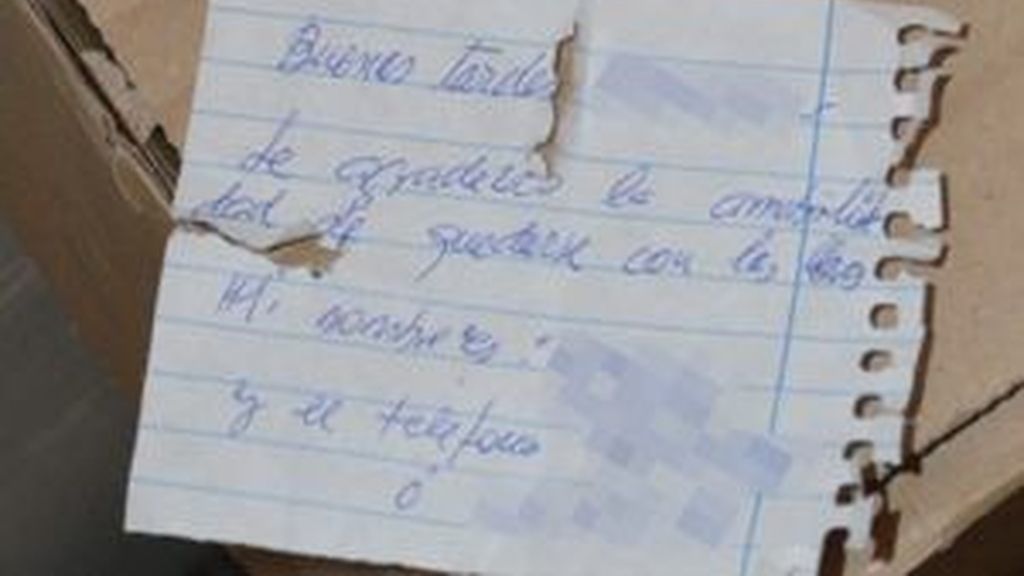 Buenas tardes
te agradezco la amabili
dad de quedarse con las
Mi nombre es:
y el teléfono
ó